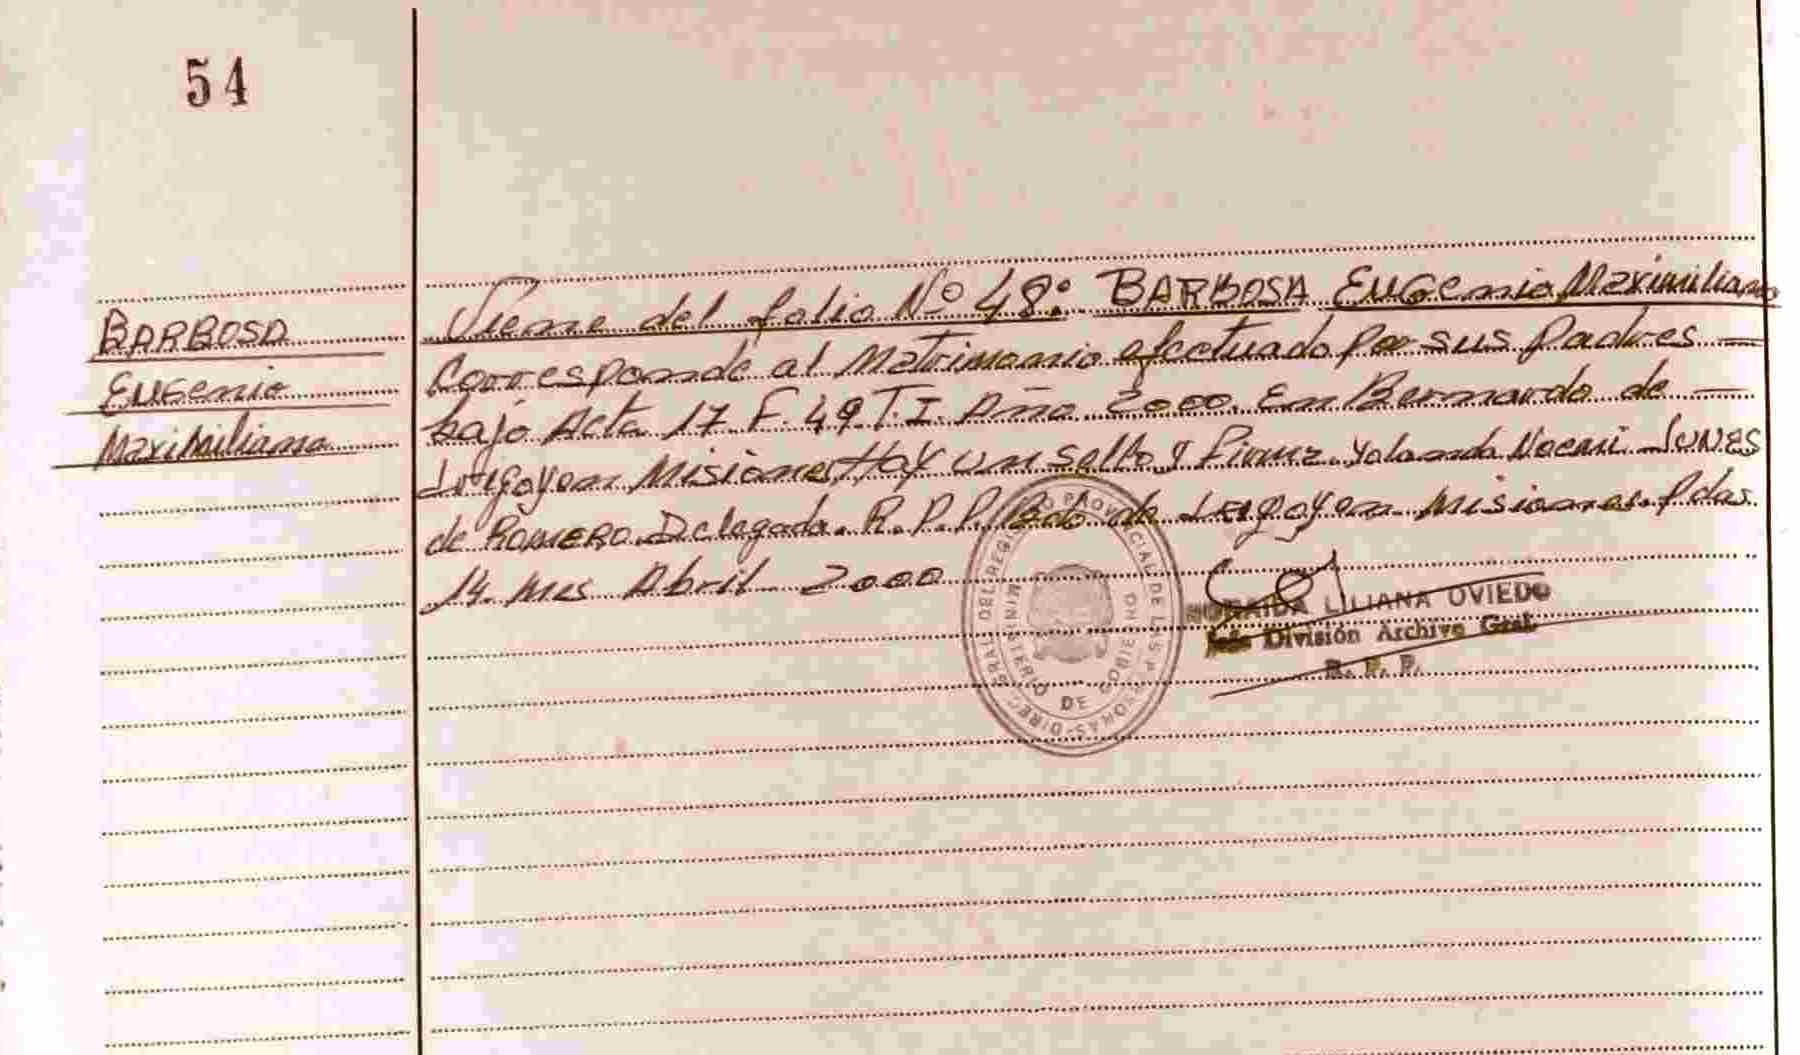 54
BARBOSA
Eugenio
Maximiliano
Viene del folio Nº 48: BARBOSA Eugenio Maximiliano
Corresponde al Matrimonio efectuado por sus padres —
bajo Acta 17 F. 49 T. I. Año 2000. En Bernardo de —
Irigoyen Misiones Hay un sello y Firma Yolanda Noemi
de ROMERO Delegada. R.P.P. Bdo de Irigoyen Misiones. Pdas
14 Mes Abril 2000
REGISTRO PROVINCIAL DE LAS PERSONAS
MINISTERIO DE GOBIERNO
LILIANA OVIEDO
Jefe División Archivo Gral.
R. P. P.